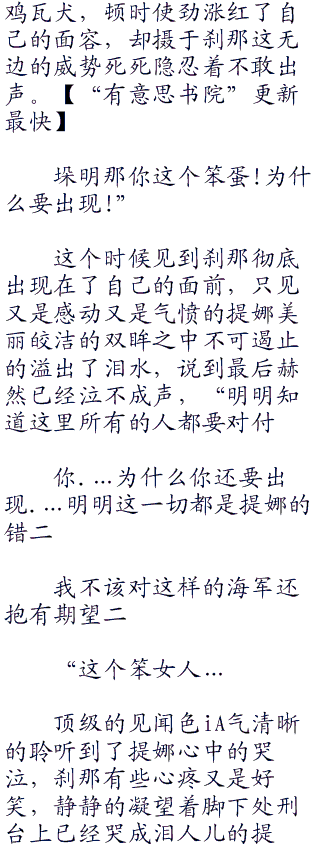 鸡瓦犬，顿时使劲涨红了自
己的面容，却摄于刹那这无
边的威势死死隐忍着不敢出
声。【“有意思书院”更新
最快】
垛明那你这个笨蛋！为什
么要出现！”
这个时候见到刹那彻底
出现在了自己的面前，只见
又是感动又是气愤的提娜美
丽皎洁的双眸之中不可遏止
的溢出了泪水，说到最后赫
然已经泣不成声，“明明知
道这里所有的人都要对付
你．…为什么你还要出
现．…明明这一切都是提娜的
错二
我不该对这样的海军还
抱有期望二
“这个笨女人…
顶级的见闻色iA气清晰
的聆听到了提娜心中的哭
泣，刹那有些心疼又是好
笑，静静的凝望着脚下处刑
台上已经哭成泪人儿的提